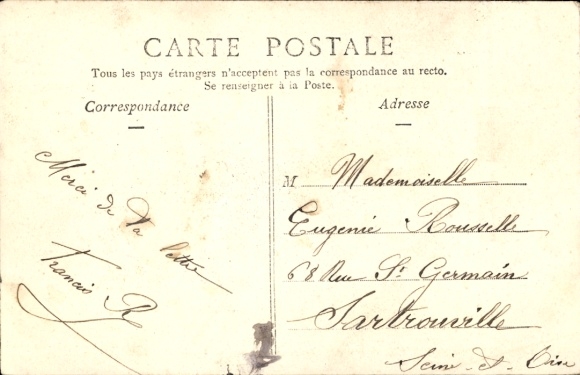 CARTE POSTALE
Tous les pays étrangers n'acceptent pas la correspondance au recto.
Se renseigner à la Poste.
Correspondance
Merci de ta lettre
Francis R
Adresse
M Mademoiselle
Eugenie Rousselle
68 Rue St Germain
Sartrouville
Seine-et-Oise